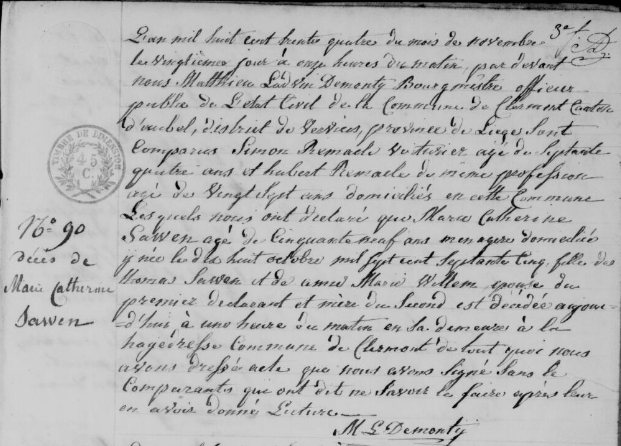 3e f.
L'an mil huit cent trente quatre du mois de novembre
le vingtième jour à onze heures du matin, par devant
nous Matthieu Demonty Bourgmestre officier
public de l'etat Civil de la Commune de Clermont Canton
d'aubel, district de Verviers, province de Liege sont
Comparus Simon Remacle Voiturier agé de Septante
quatre ans et hubert Remacle de même profession
agé de Vingt Sept ans domiciliés en cette Commune
Lesquels nous ont déclaré que Marie Catherine
Sawen agé de Cinquante neuf ans menagere domiciliée
y née le dix huit octobre mil Sept cent Septante Cinq, fille de
thomas Sawen et de Marie Willem, epouse du
premier declarant et mère du Second est décédée aujour-
d'hui à une heure du matin en Sa demeure à la
hagedresse Commune de Clermont de tout quoi nous
avons dressé acte que nous avons Signé Sans les
Comparants qui ont dit ne Savoir le faire après leur
en avoir donné Lecture
M L Demonty
TIMBRE DE DIMENSION
45
C.
No. 90
décès de
Marie Catherine
Sawen